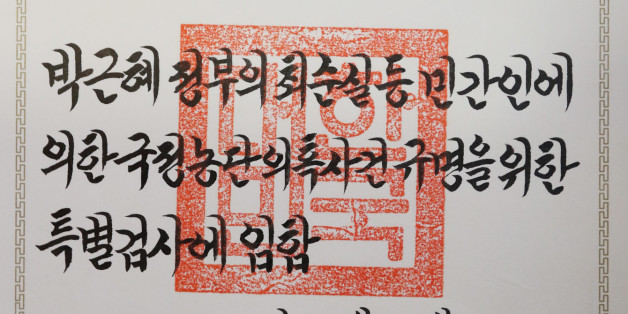 박근혜 정부의 최순실 등 민간인에
의한 국정농단 의혹사건 규명을 위한
특별검사에 임함
대한민국